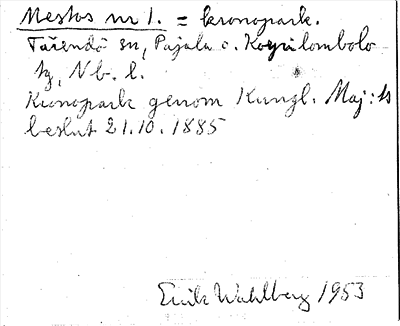 Mestos nr 1. = kronopark.
Tärendö sn, Pajala o. Korpilombolo
tg, Nb. l.
Kronopark genom Kungl. Maj:ts
beslut 21.10.1885
Erik Wahlberg 1953